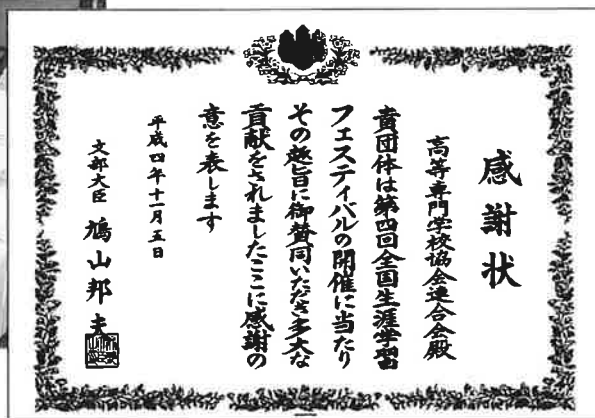 感謝状
高等専門学校協会連合会殿
貴団体は第四回全国生涯学習
フェスティバルの開催に当たり
その趣旨に御賛同いただき多大な
貢献をされましたここに感謝の
意を表します
平成四年十一月五日
文部大臣 鳩山邦夫